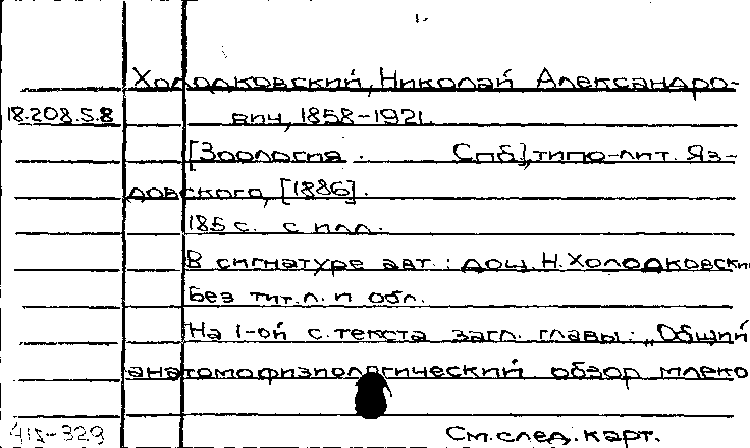 Холодковский, Николай Александро-
18.208.5.8 вич, 1858-1921.
[Зоология. Спб], типо-лит. Яз-
довского, [1886].
185 с. с илл.
В сигнатуре авт.: доц. Н. Холодковски
Без тит. л. и обл.
На 1-ой с. текста загл. главы: „Общий
анатомофизиологический обзор млеко
415-329 См. след. карт.